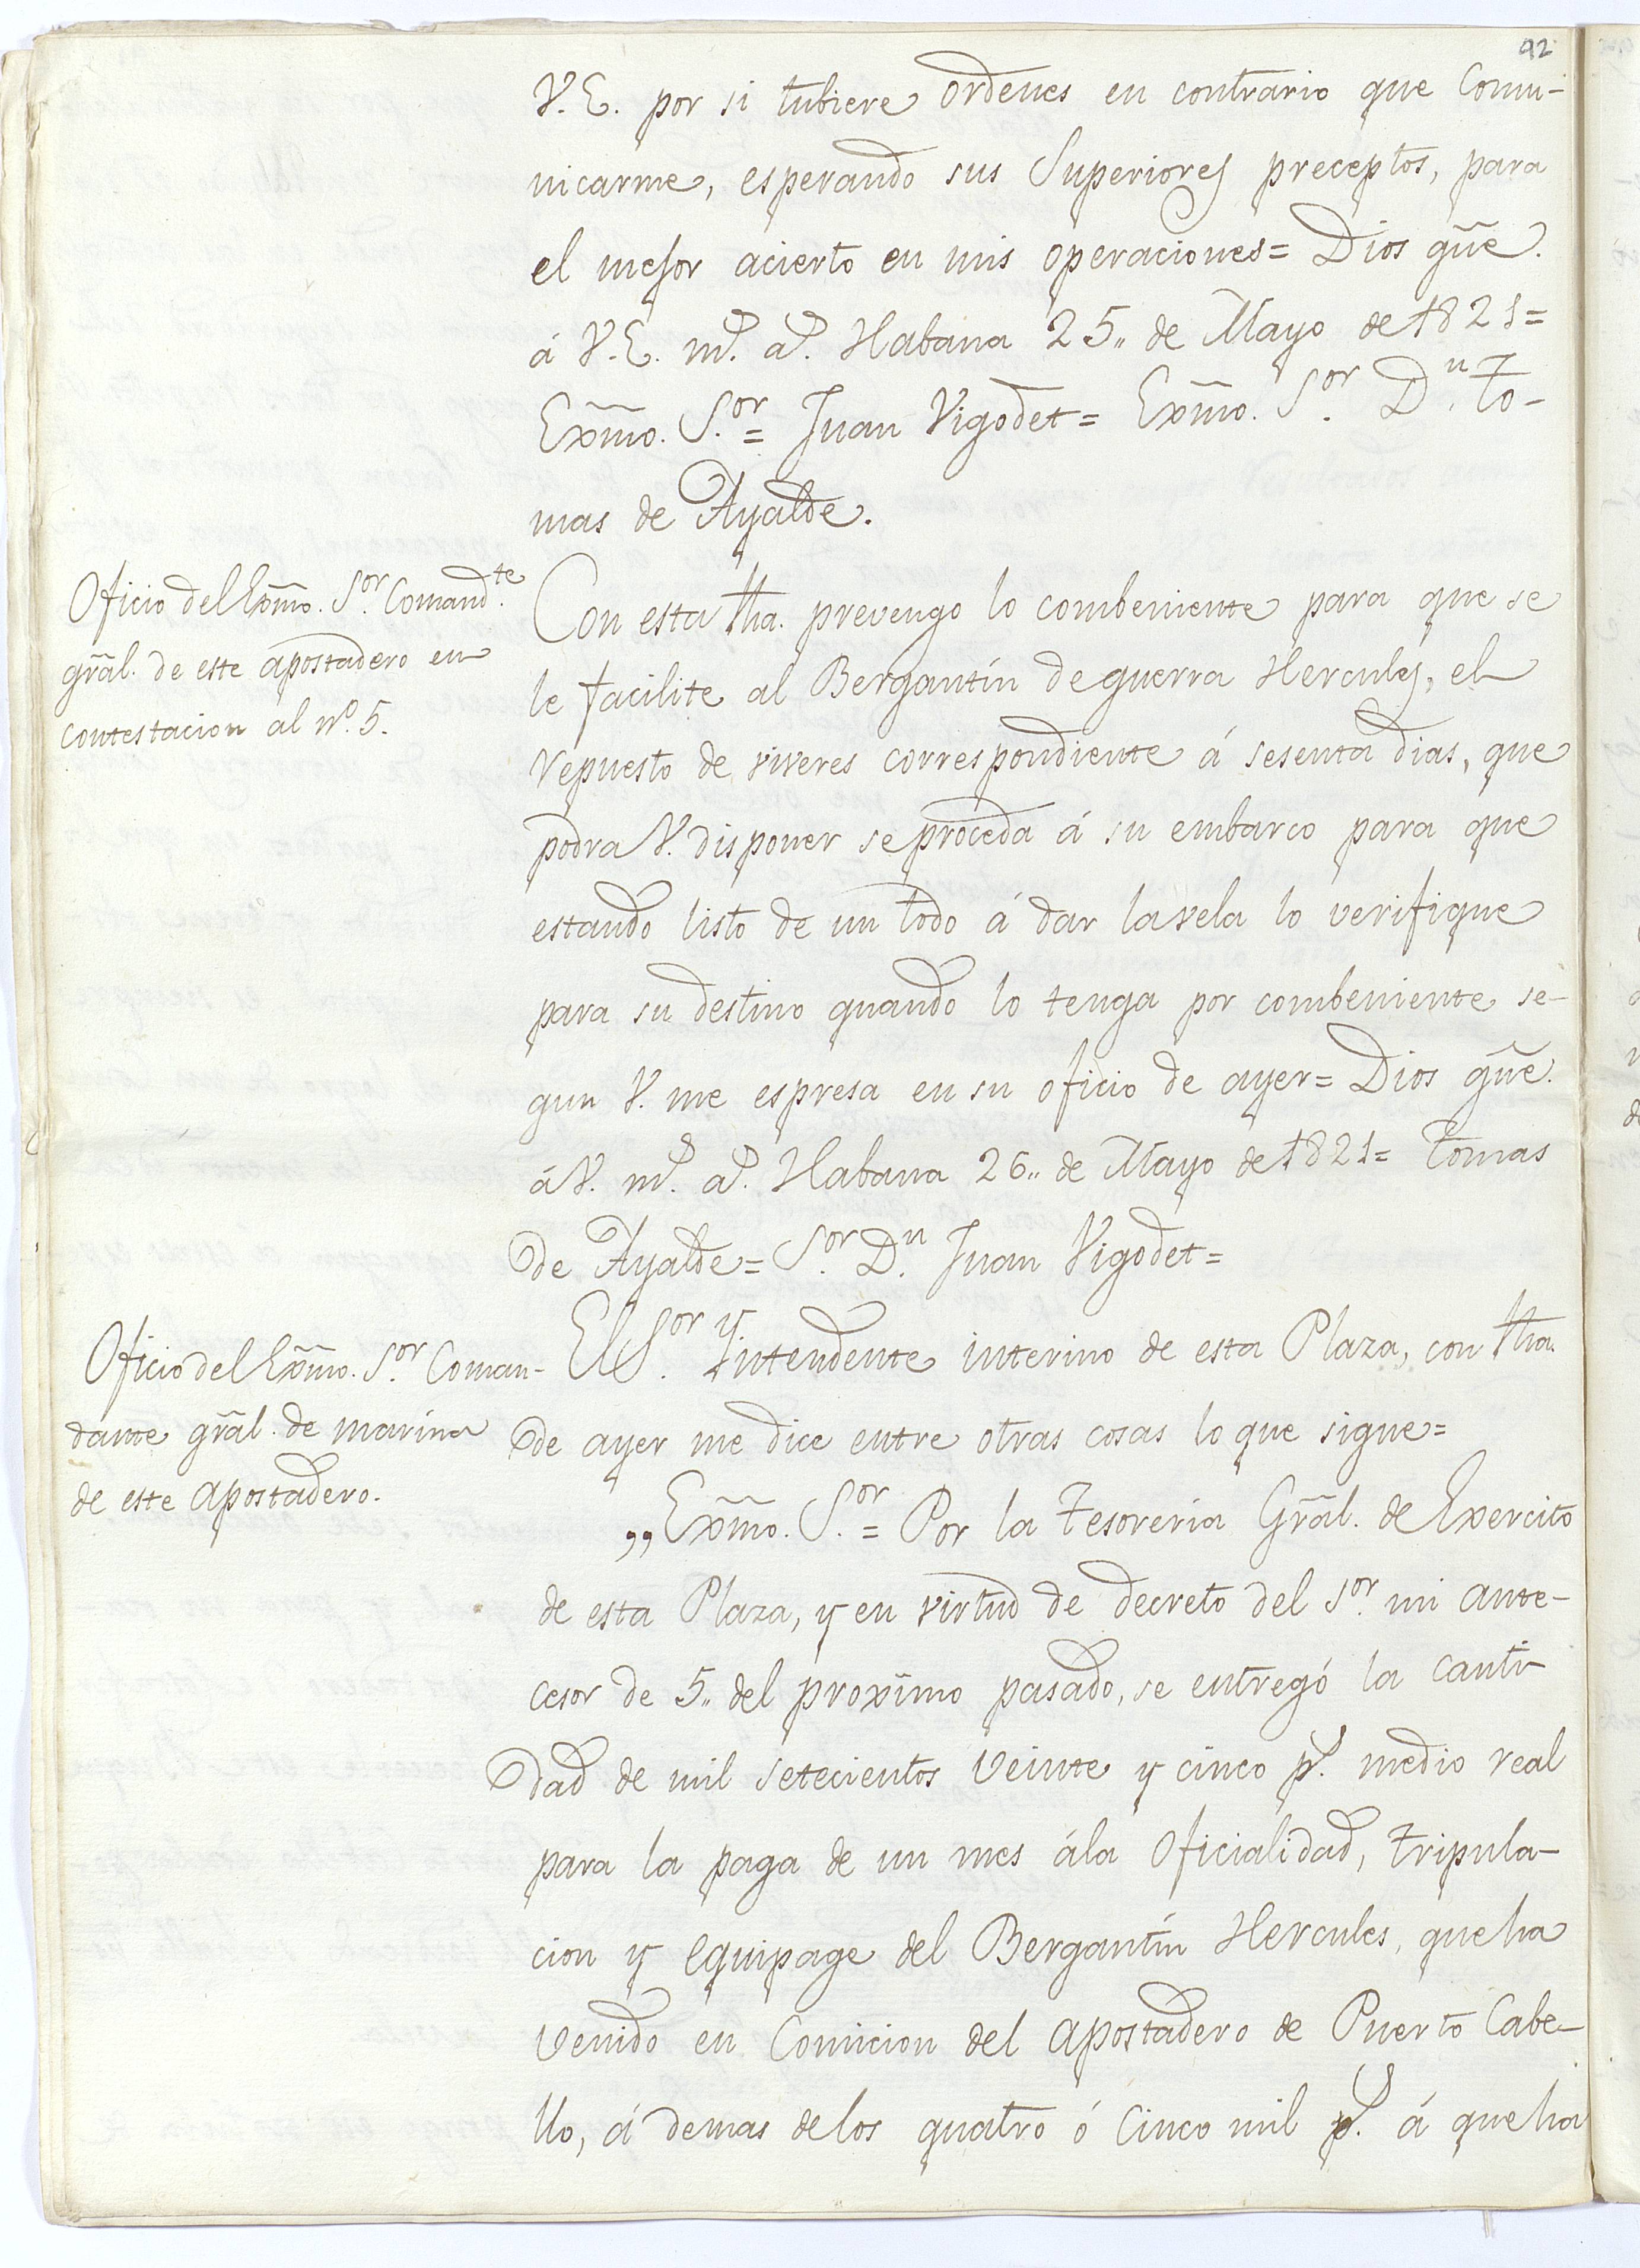 92
V.E. por si tubiere ordenes en contrario que Comu-
nicarme, esperando sus Superiores preceptos, para
el mejor acierto en mis operaciones= Dios gũe.
á V.E. m.ˢ a.ˢ Habana 25,, de Mayo de 1821=
Exm̃o. S.ᵒʳ= Juan Vigodet= Exm̃o. S.ᵒʳ D.ⁿ To-
mas de Ayalde.
Oficio del Exm̃o. S.ᵒʳ Comand.ᵗᵉ
gr̃al. de este apostadero en
contestacion al nº. 5.
Con esta fha. prevengo lo combeniente para que se
le facilite al Bergantín de guerra Hercules, el
repuesto de viveres correspondiente á sesenta dias, que
podra V. disponer se proceda á su embarco para que
estando listo de un todo á dar la vela lo verifique
para su destino quando lo tenga por combeniente se-
gun V. me espresa en su oficio de ayer= Dios gũe.
á V. m.ˢ a.ˢ Habana 26,, de Mayo de 1821= Tomas
de Ayalde= S.ᵒʳ D.ⁿ Juan Vigodet=
Oficio del Exm̃o. S.ᵒʳ Coman-
dante gr̃al. de marina
de este apostadero.
El S.ᵒʳ Yntendente interino de esta Plaza, con fha.
de ayer me dice entre otras cosas lo que sigue=
,,Exm̃o. S.ᵒʳ= Por la Tesoreria Gr̃al. de Exercito
de esta Plaza, y en virtud de decreto del S.ᵒʳ mi ante-
cesor de 5,, del proximo pasado, se entregó la canti-
dad de mil setecientos veinte y cinco p.ˢ medio real
para la paga de un mes á la Oficialidad, tripula-
cion y equipage del Bergantín Hercules, que ha
venido en Comicion del apostadero de Puerto Cabe-
llo, á demas de los quatro ó cinco mil p.ˢ á que ha